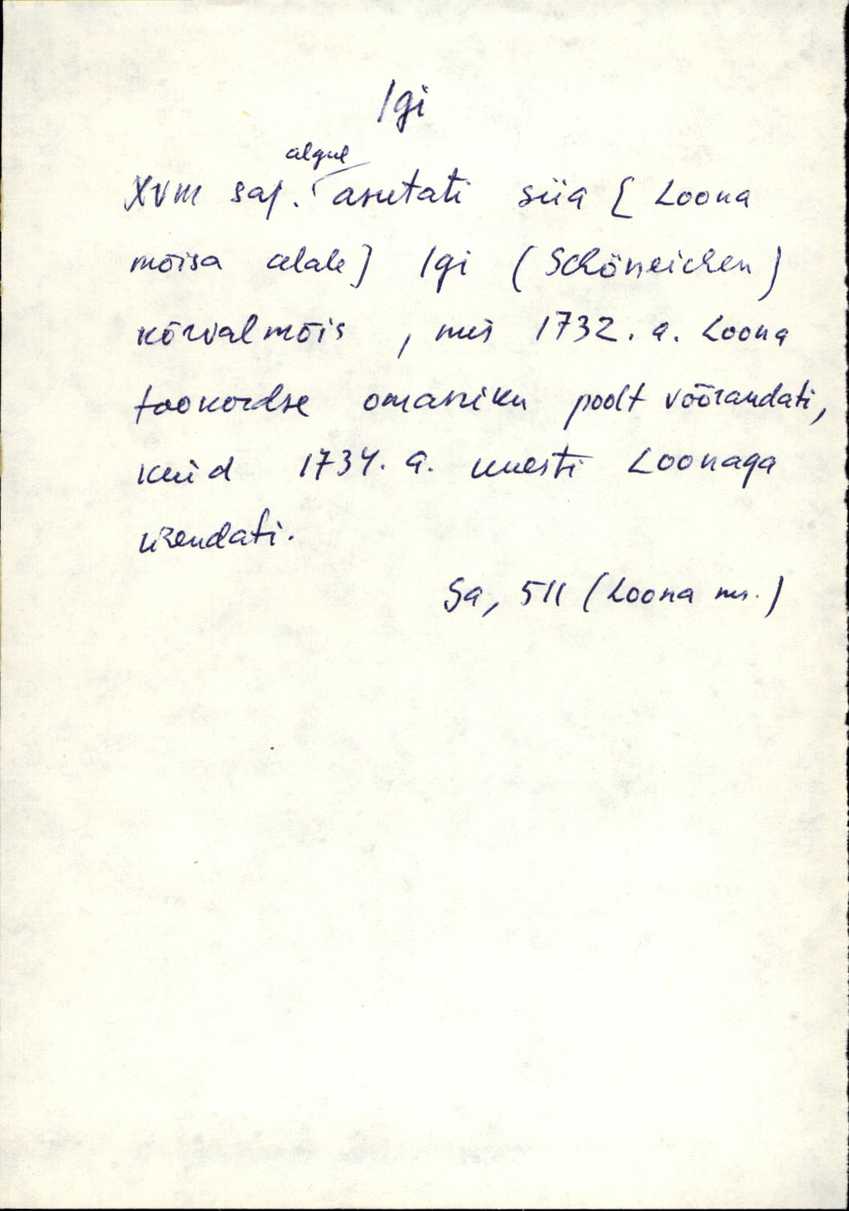 Igi
XVIII saj. algul asutati siia [Loona
mõisa alale] Igi (Schöneichen)
kõrvalmõis, mis 1732. a. Loona
tookordse omaniku poolt võõrandati,
kuid 1734. a. uuesti Loonaga
ühendati.
Sa, 511 (Loona ms.)